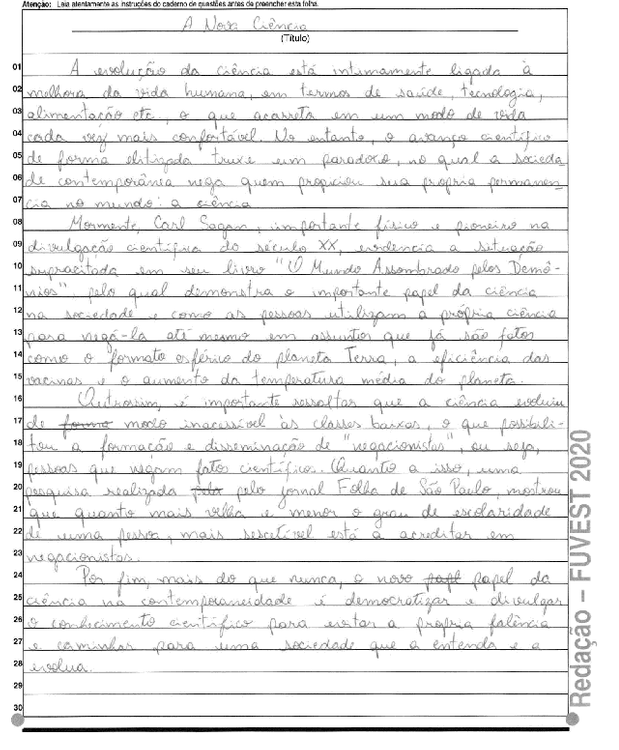 Atenção: Leia atentamente as instruções do caderno de questões antes de preencher esta folha.
A Nova Ciência
(Título)
01 A evolução da ciência está intimamente ligada à
02 melhora da vida humana, em termos de saúde, tecnologia,
03 alimentação etc, o que acarreta em um modo de vida
04 cada vez mais confortável. No entanto, o avanço científico
05 de forma elitizada truxe um paradoxo, no qual a socieda
06 de contemporânea nega quem propiciou sua propria permanen
07 cia no mundo: a ciência
08 Mormente, Carl Sagan, importante físico e pioneiro na
09 divulgação científica do século XX, evidencia a situação
10 supracitada em seu livro "O Mundo Assombrado pelos Demô-
11 nios", pelo qual demonstra o importante papel da ciência
12 na sociedade e como as pessoas utilizam a própria ciência
13 para negá-la até mesmo em assuntos que já são fatos
14 como o formato esférico do planeta Terra, a eficiência das
15 vacinas e o aumento da temperatura média do planeta.
16 Outrossim, é importante ressaltar que a ciência evoluiu
17 de forma modo inacessível às classes baixas, o que possibili-
18 tou a formação e disseminação de "negacionistas", ou seja,
19 pessoas que negam fatos científicos. Quanto a isso, uma
20 pesquisa realizada pelo pelo jornal Folha de São Paulo, mostrou
21 que quanto mais velha e menor o grau de escolaridade
22 de uma pessoa, mais sescetível está a acreditar em
23 negacionistas.
24 Por fim, mais do que nunca, o novo papel da
25 ciência na contemporaneidade é democratizar e divulgar
26 o conhecimento científico para evitar a propria falência
27 e caminhar para uma sociedade que a entenda e a
28 evolua.
29
30
Redação – FUVEST 2020